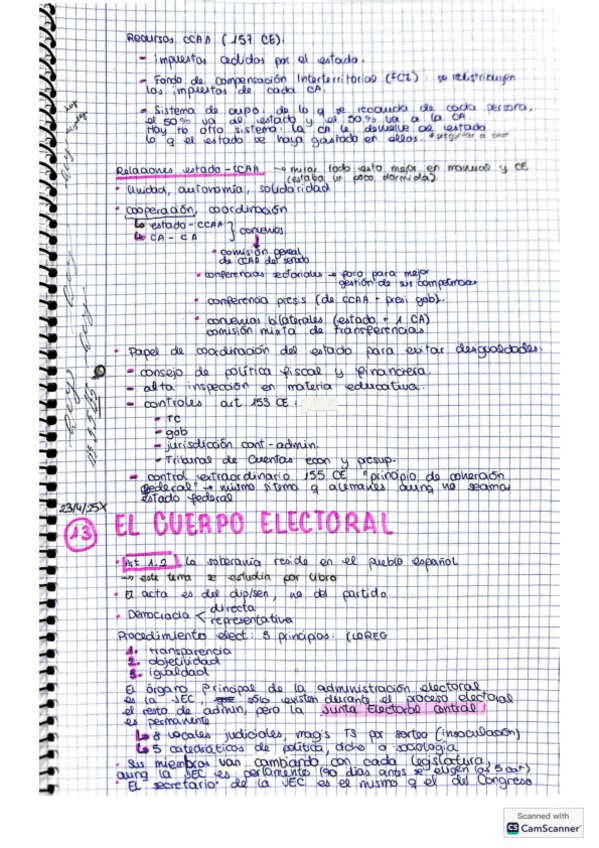 Recursos CCAA (157 CE):
- impuestos cedidos por el estado.
- Fondo de Compensación Interterritorial (FCI): se redistribuyen
los impuestos de cada CA.
- Sistema de cupo: de lo q se recauda de cada persona,
el 50% va al estado y el 50% va a la CA
Hay to otro sistema: la CA le devuelve al estado
lo q el estado se haya gastado en ellos.
Relaciones estado-CCAA → mirar todo esto mejor en manual y CE
(estaba un poco dormida).
· Unidad, autonomía, solidaridad
· cooperación, coordinación
↳ estado-CCAA } convenios
↳ CA-CA
· comisión general
de CCAA del senado
· conferencias sectoriales → foro para mejor
gestión de sus competencias
· conferencia presis (de CCAA + presi gob).
· convenios bilaterales (estado + 1 CA)
comisión mixta de transferencias
· Papel de coordinación del estado para evitar desigualdades.
- consejo de política fiscal y financiera.
- alta inspección en materia educativa.
- controles art 153 CE:
- TC
- gob
- jurisdicción cont-admin.
- Tribunal de Cuentas econ y presup.
- control extraordinario 155 CE "principio de coherción
federal" → mismo sistma q alemanes aunq no seamos
estado federal
23/4/25 X
13 EL CUERPO ELECTORAL
· Art 1.2 la soberanía reside en el pueblo español
→ este tema se estudia por libro
· El acta es del dip/sen, no del partido
· Democracia < directa
representativa
Procedimiento elect: 3 principios: (LOREG
1. transparencia
2. objetividad
3. igualdad
El órgano principal de la administración electoral
es la JEC, sólo existen durante el proceso electoral
el resto de admin, pero la Junta Electoral Central
es permanente
↳ 8 vocales judiciales, magis TS por sorteo (insaculación)
↳ 5 catedráticos de política, dcho o sociología
· Sus miembros van cambiando con cada legislatura,
aunq la JEC es permanente (90 días antes se eligen los 5 cat)
· El secretario de la JEC es el mismo q el del Congreso
Scanned with
CS CamScanner